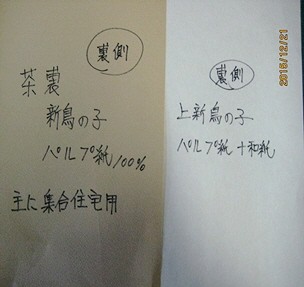 裏側
茶裏
新鳥の子
パルプ紙100%
主に集合住宅用
裏側
上新鳥の子
パルプ紙+和紙
2015/12/21